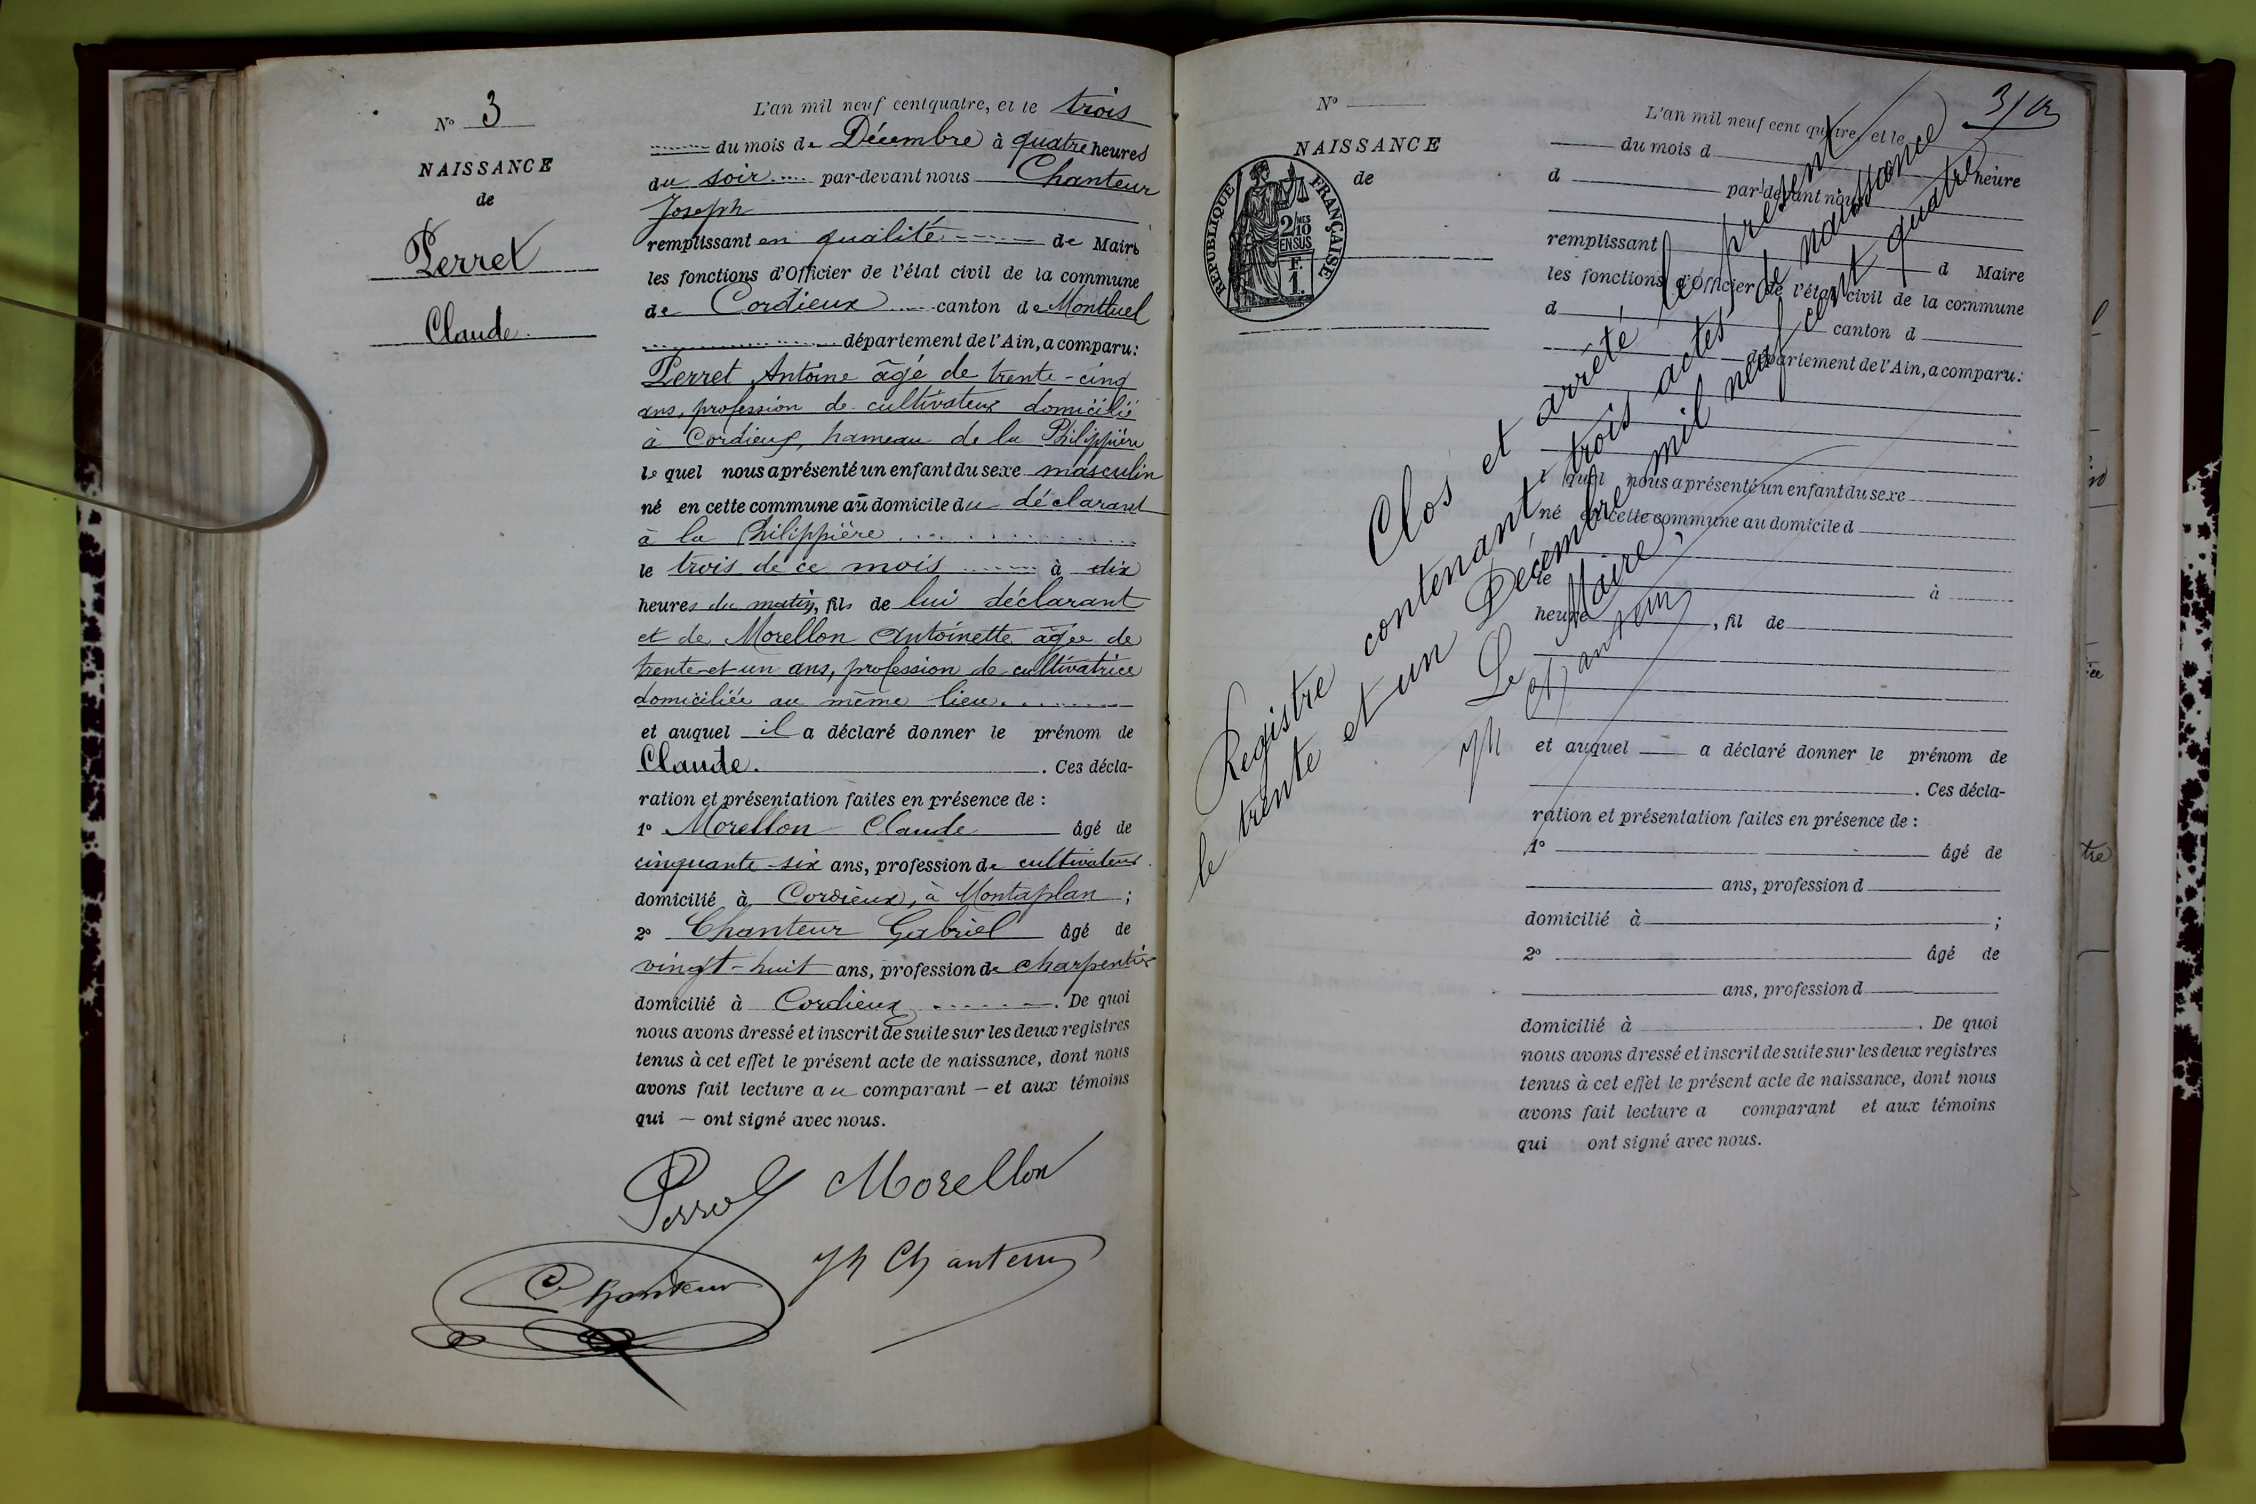 N° 3
NAISSANCE
de
Perret
Claude
L'an mil neuf cent quatre, et le trois
du mois de Décembre à quatre heures
du soir par-devant nous Chanteur
Joseph
remplissant en qualité de Maire
les fonctions d'Officier de l'état civil de la commune
de Cordieux canton de Montluel
département de l'Ain, a comparu:
Perret Antoine âgé de trente-cinq
ans, profession de cultivateur domicilié
à Cordieux, hameau de la Philippière
le quel nous a présenté un enfant du sexe masculin
né en cette commune au domicile du déclarant
à la Philippière
le trois de ce mois à dix
heures du matin, fils de lui déclarant
et de Morellon Antoinette âgée de
trente et un ans, profession de cultivatrice
domiciliée au même lieu.
et auquel il a déclaré donner le prénom de
Claude. . Ces décla-
ration et présentation faites en présence de :
1° Morellon Claude âgé de
cinquante-six ans, profession de cultivateur
domicilié à Cordieux, à Montaplan ;
2° Chanteur Gabriel âgé de
vingt-huit ans, profession de charpentier
domicilié à Cordieux . De quoi
nous avons dressé et inscrit de suite sur les deux registres
tenus à cet effet le présent acte de naissance, dont nous
avons fait lecture au comparant – et aux témoins
qui – ont signé avec nous.
Perret Morellon
Chanteur Jh Chanteur
3/
N°
NAISSANCE
de
RÉPUBLIQUE FRANÇAISE
2/10 MES
EN SUS
F.
1.
L'an mil neuf cent quatre, et le
du mois d
heure
d par-devant nous
remplissant d Maire
les fonctions d'Officier de l'état civil de la commune
d canton d
département de l'Ain, a comparu:
l quel nous a présenté un enfant du sexe
né en cette commune au domicile d
le à
heure , fil de
et auquel a déclaré donner le prénom de
. Ces décla-
ration et présentation faites en présence de :
1° âgé de
ans, profession d
domicilié à ;
2° âgé de
ans, profession d
domicilié à . De quoi
nous avons dressé et inscrit de suite sur les deux registres
tenus à cet effet le présent acte de naissance, dont nous
avons fait lecture a comparant et aux témoins
qui ont signé avec nous.
Clos et arrêté le présent
Registre contenant trois actes de naissance
le trente et un Décembre mil neuf cent quatre
Le Maire,
Jh Chanteur
tre